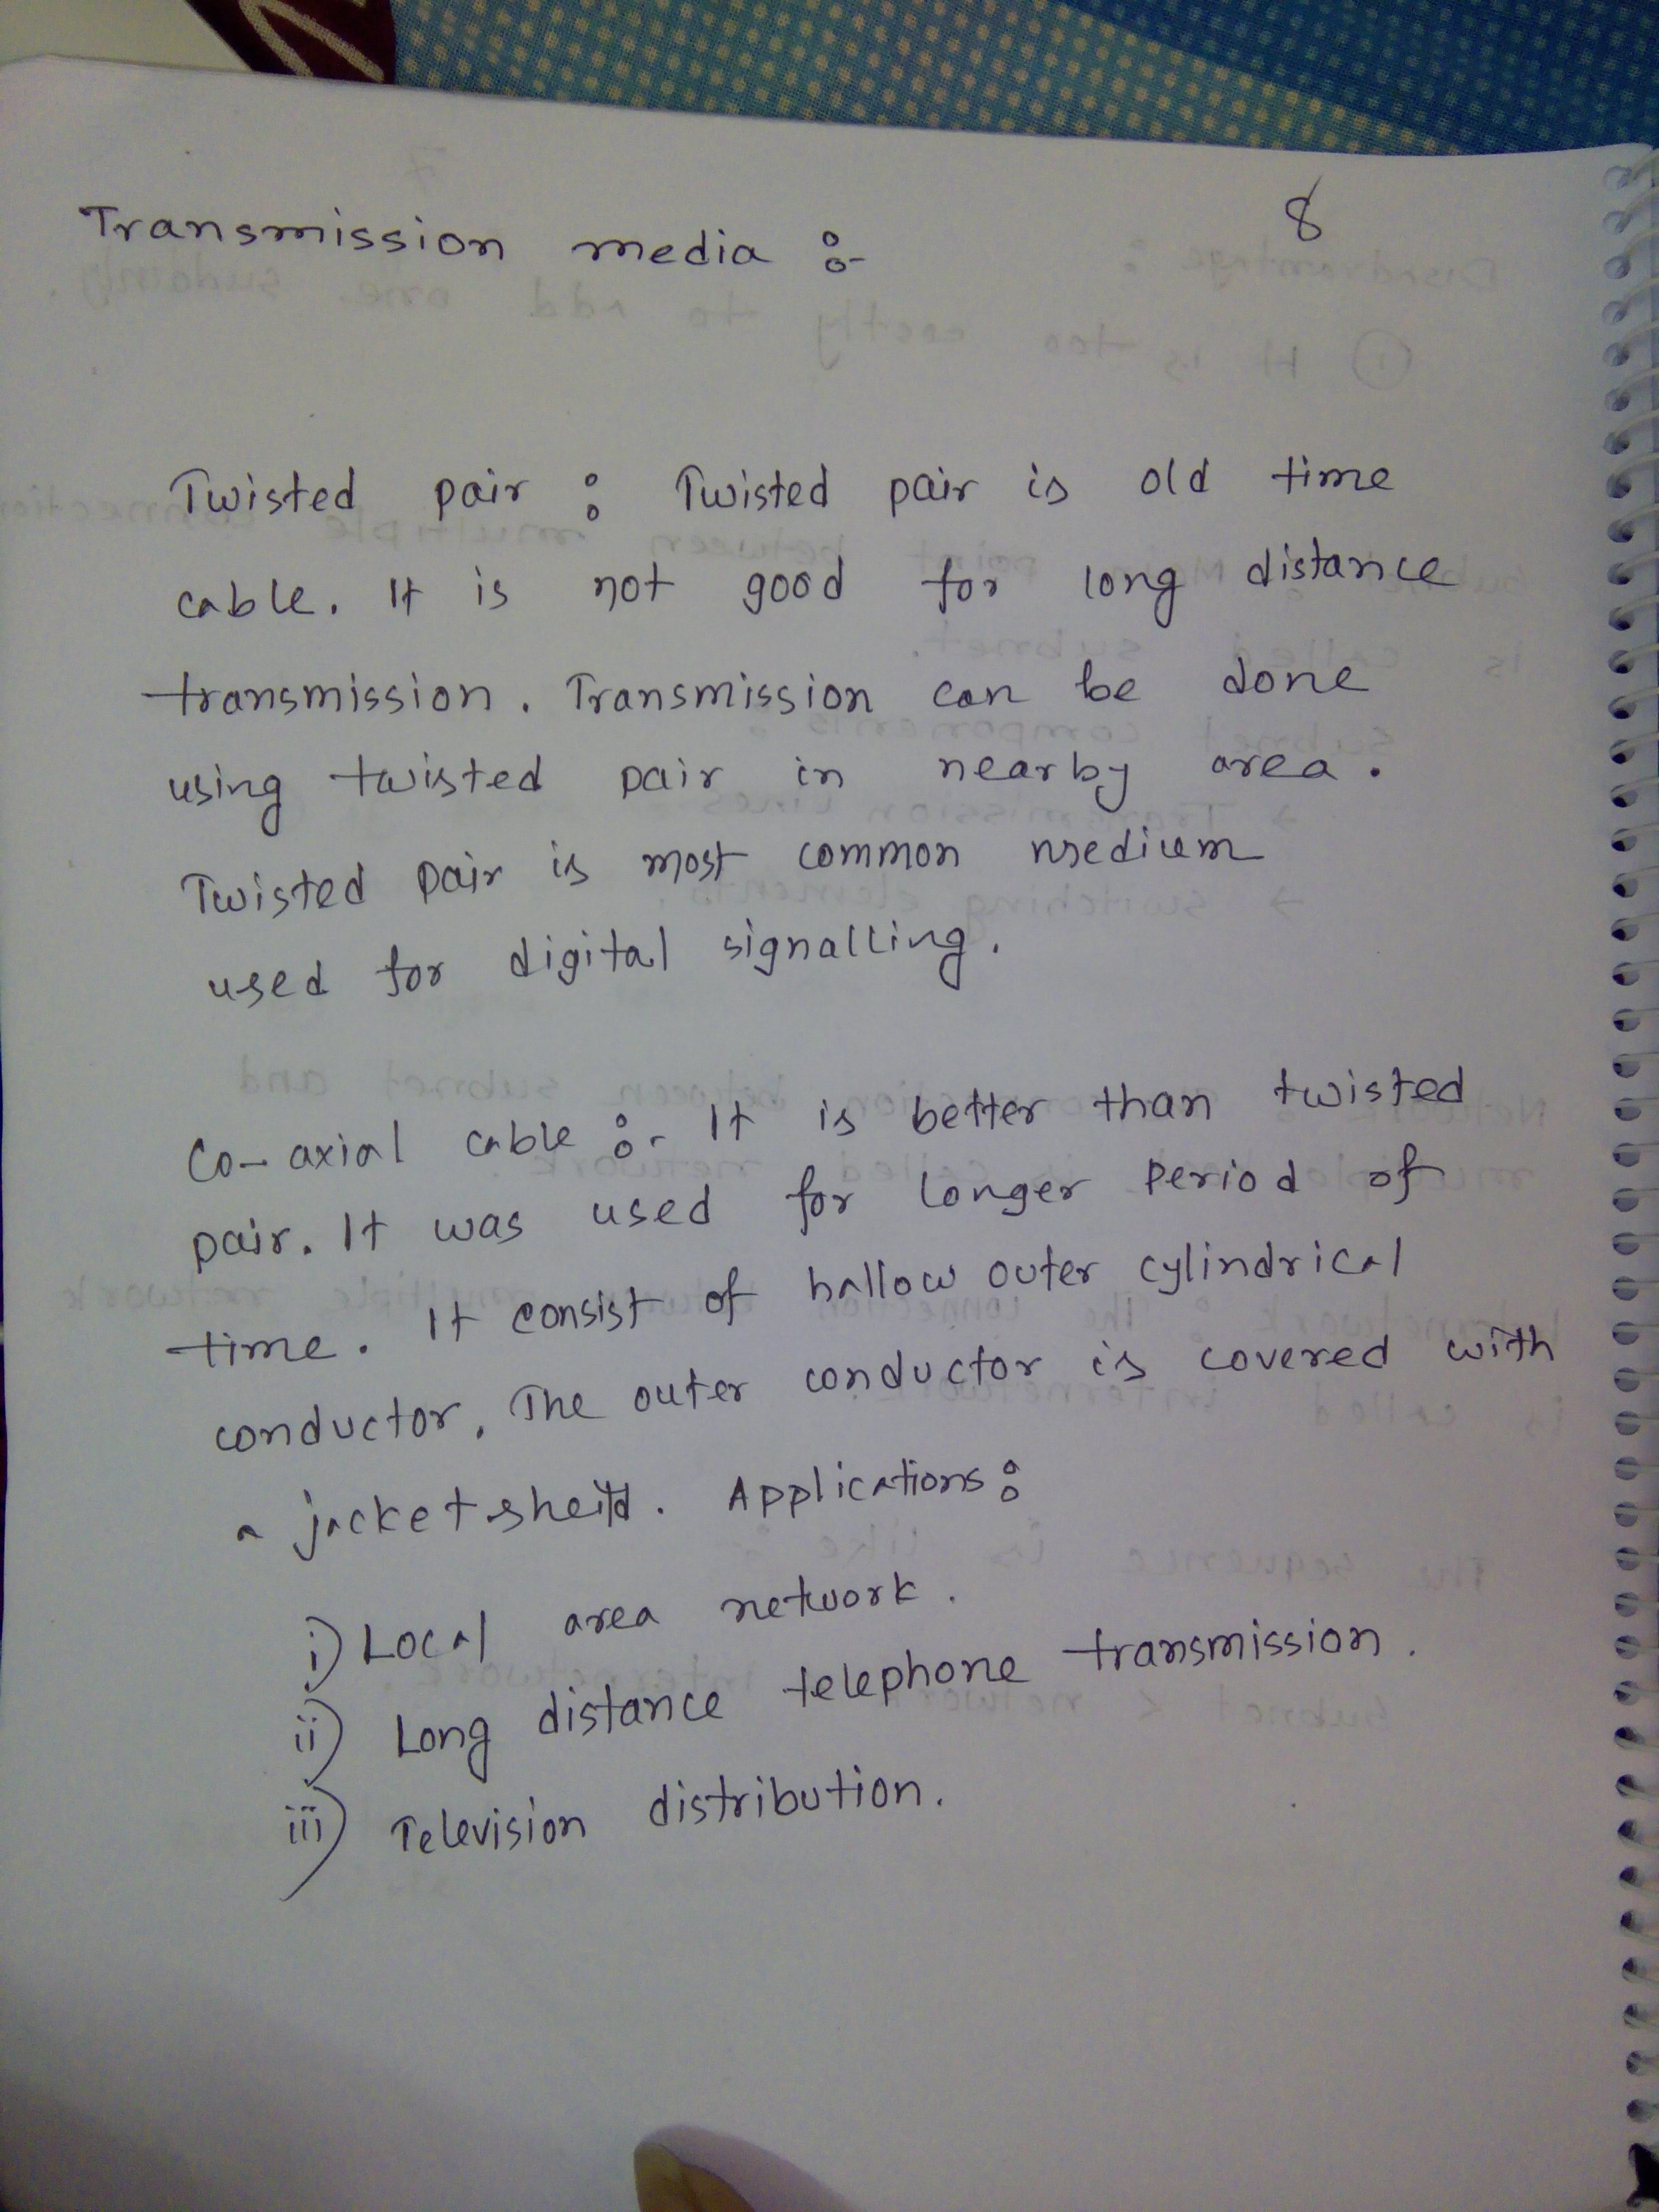 8
Transmission media :-
Twisted pair : Twisted pair is old time
cable. It is not good for long distance
transmission. Transmission can be done
using twisted pair in nearby area.
Twisted pair is most common medium
used for digital signalling.
Co-axial cable :- It is better than twisted
pair. It was used for longer period of
time. It consist of hallow outer cylindrical
conductor. The outer conductor is covered with
a jacket sheild. Applications :
i) Local area network.
ii) Long distance telephone transmission.
iii) Television distribution.